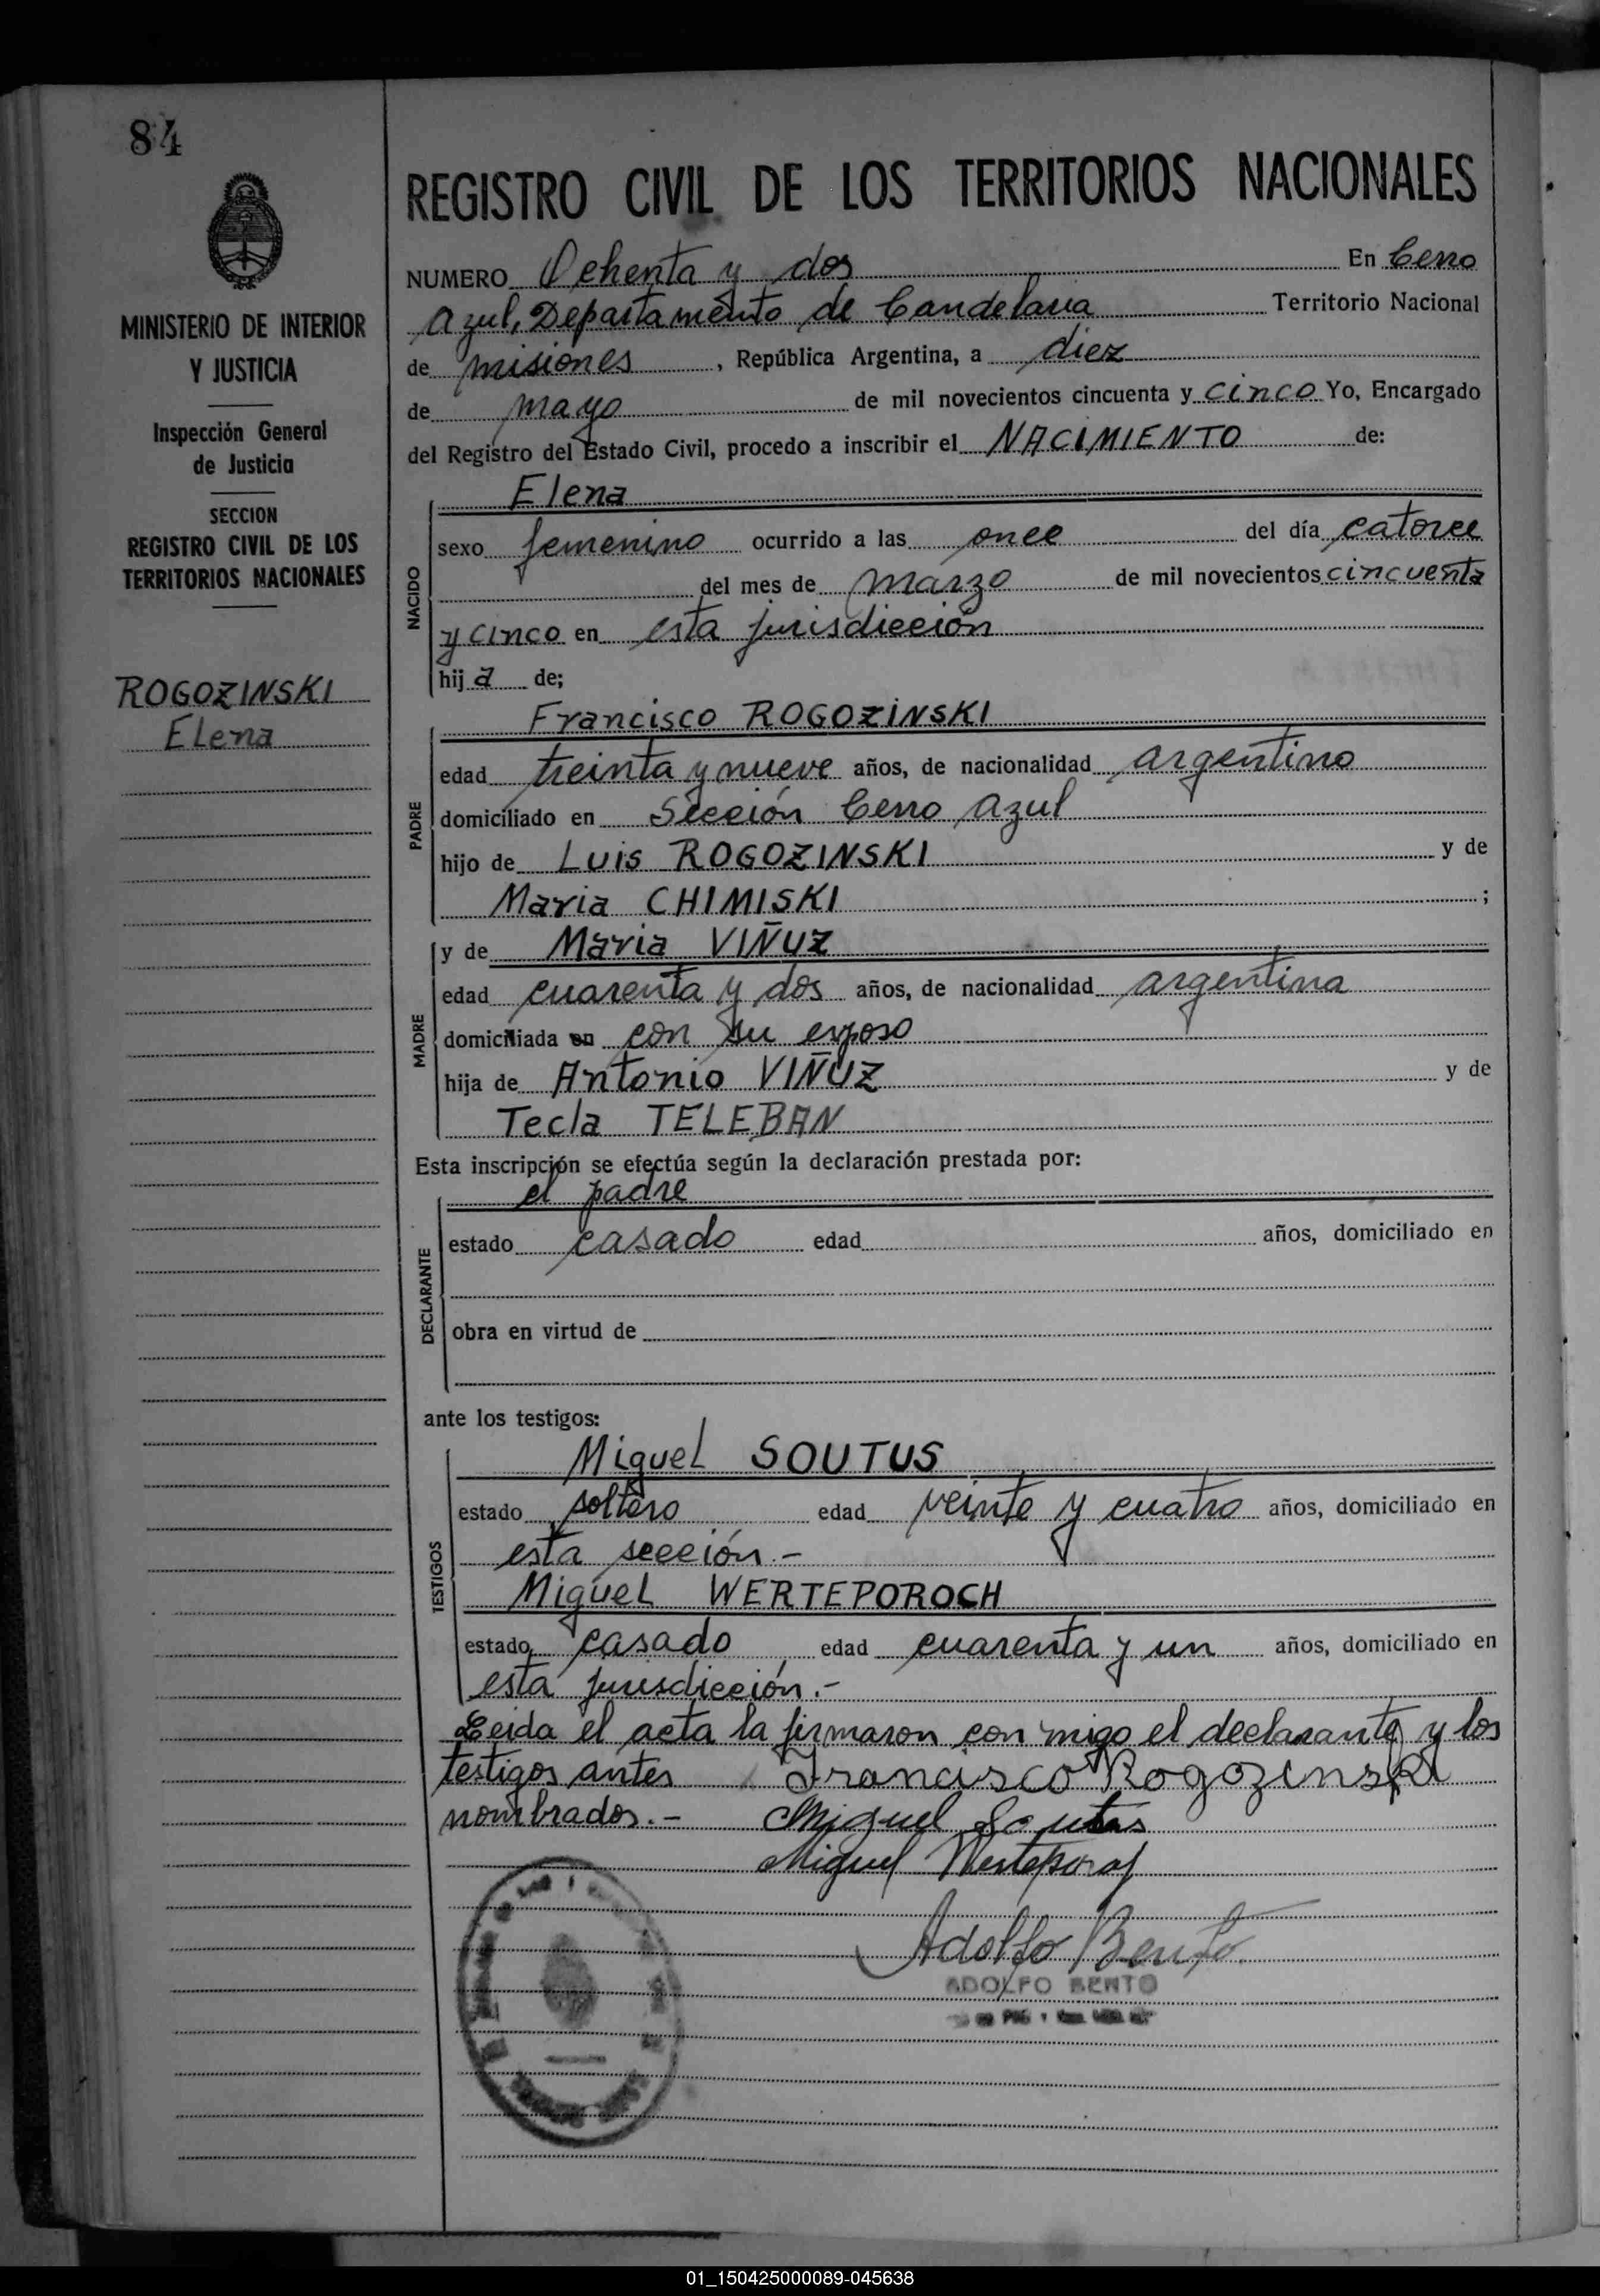 84
MINISTERIO DE INTERIOR
Y JUSTICIA
Inspección General
de Justicia
SECCION
REGISTRO CIVIL DE LOS
TERRITORIOS NACIONALES
ROGOZINSKI
Elena
REGISTRO CIVIL DE LOS TERRITORIOS NACIONALES
NUMERO Ochenta y dos En Cerro
Azul, Departamento de Candelaria Territorio Nacional
de misiones , República Argentina, a diez
de mayo de mil novecientos cincuenta y cinco Yo, Encargado
del Registro del Estado Civil, procedo a inscribir el NACIMIENTO de:
NACIDO
Elena
sexo femenino ocurrido a las once del día catorce
del mes de marzo de mil novecientos cincuenta
y cinco en esta jurisdicción
hij a de;
PADRE
Francisco ROGOZINSKI
edad treinta y nueve años, de nacionalidad argentino
domiciliado en Sección Cerro Azul
hijo de Luis ROGOZINSKI y de
Maria CHIMISKI ;
MADRE
y de Maria VIÑUZ
edad cuarenta y dos años, de nacionalidad argentina
domiciliada en con su esposo
hija de Antonio VIÑUZ y de
Tecla TELEBAN
Esta inscripción se efectúa según la declaración prestada por:
DECLARANTE
el padre
estado casado edad años, domiciliado en
obra en virtud de
ante los testigos:
TESTIGOS
Miguel SOUTUS
estado soltero edad veinte y cuatro años, domiciliado en
esta sección.-
Miguel WERTEPOROCH
estado casado edad cuarenta y un años, domiciliado en
esta jurisdicción.-
Leida el acta la firmaron con migo el declarante y los
testigos antes Francisco Rogozinski
nombrados.- Miguel Soutus
Miguel
Adolfo Bento
ADOLFO BENTO
01_150425000089-045638